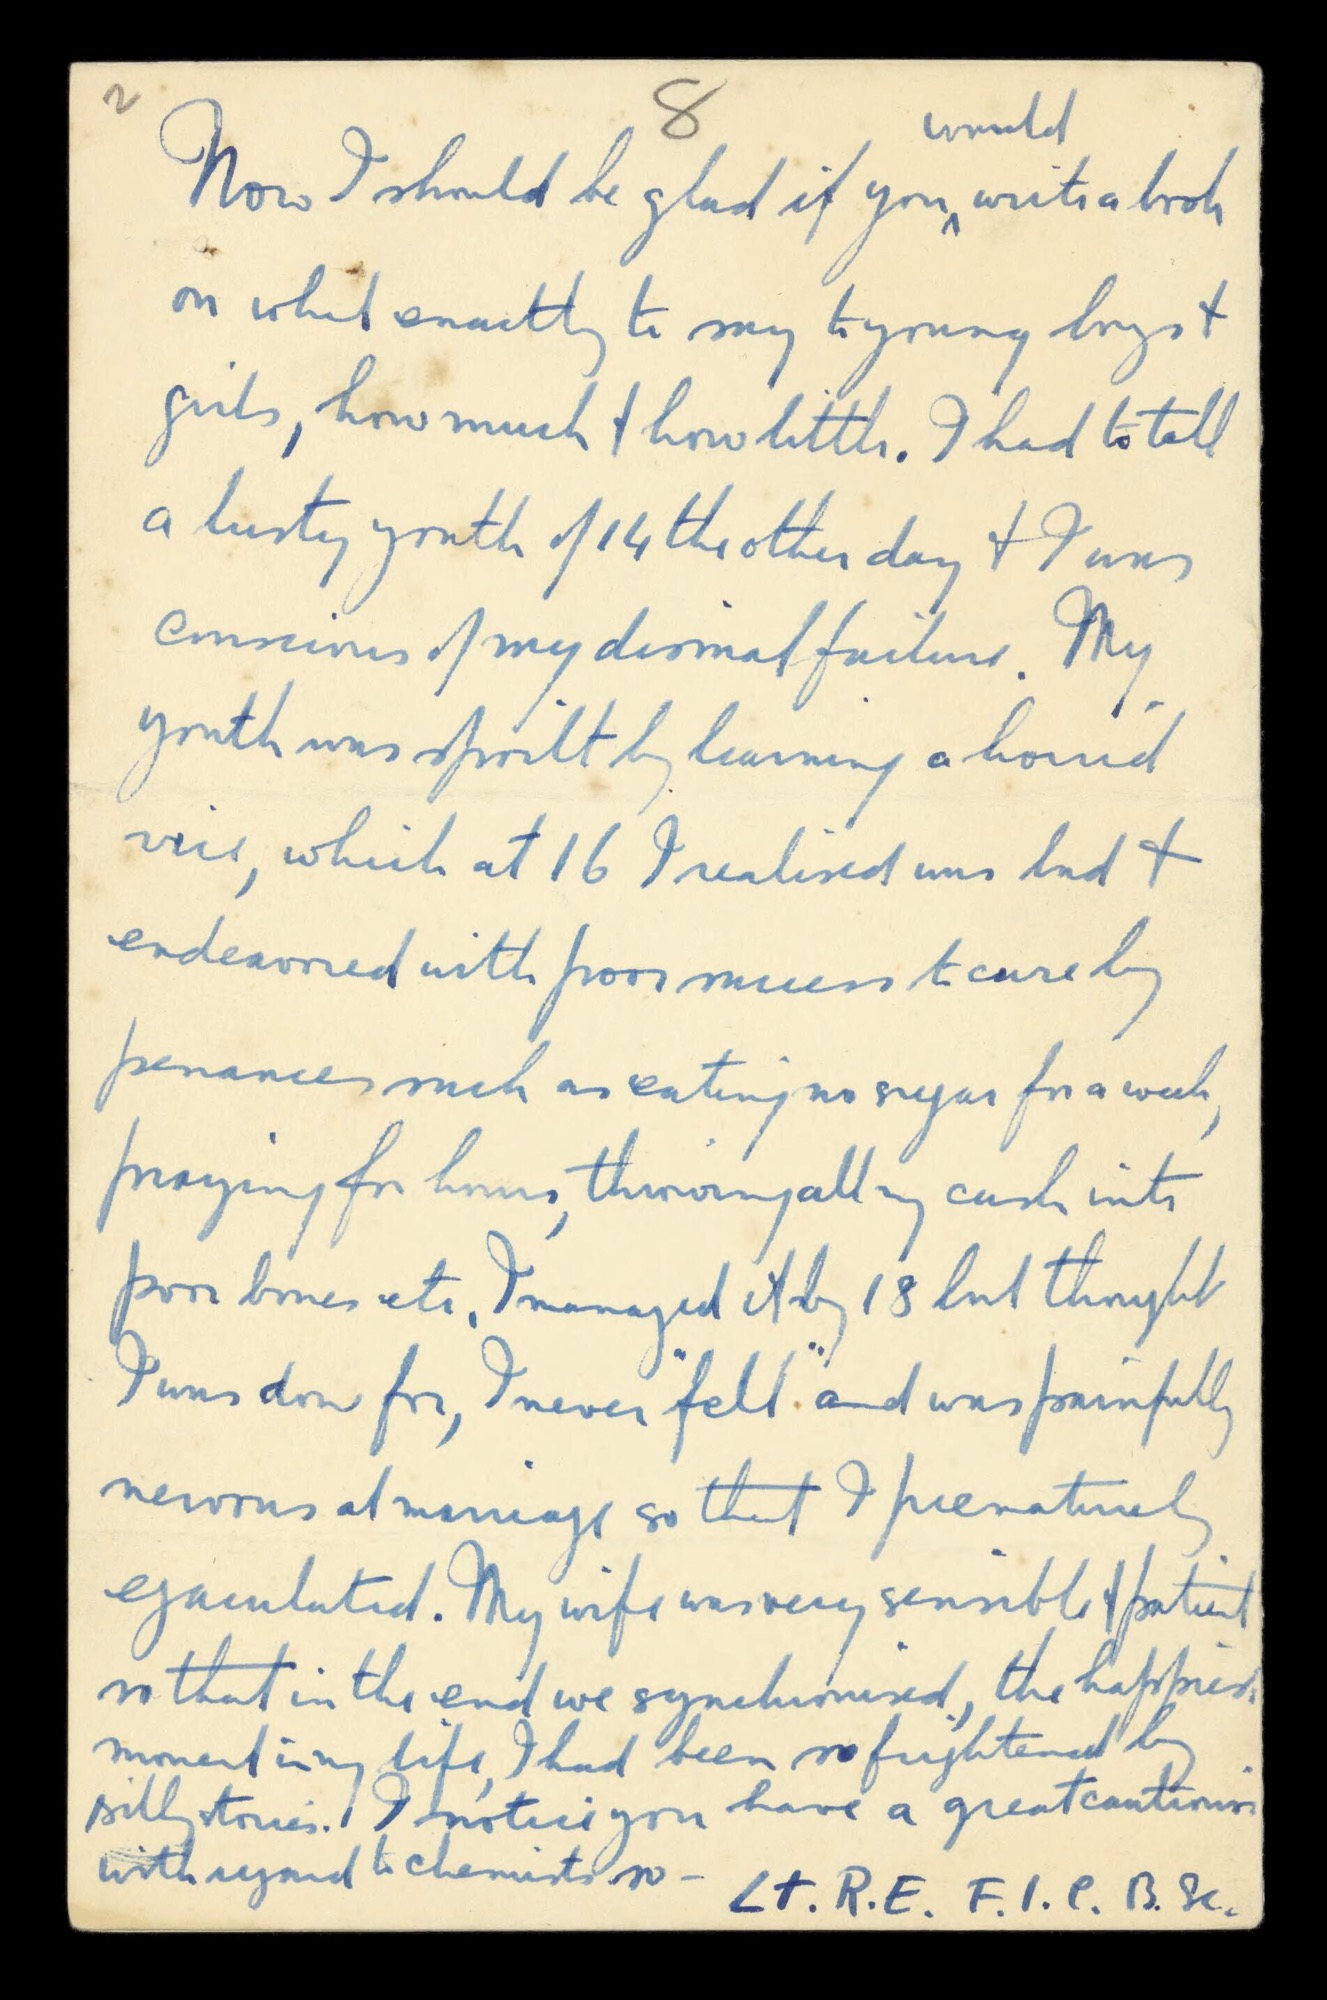 2 8
would
Now I should be glad if you ^ write a book
on what exactly to say to young boys &
girls, how much & how little. I had to tell
a lusty youth of 14 the other day & I was
conscious of my dismal failure. My
youth was spoilt by learning a horrid
vice, which at 16 I realised was bad &
endeavored with poor success to cure by
penances such as eating no sugar for a week,
praying for hours, throwing all my cash into
poor boxes etc. I managed it by 18 but thought
I was done for, I never "fell" and was painfully
nervous at marriage so that I prematurely
ejaculated. My wife was very sensible & patient
so that in the end we synchronised, the happiest
moment in my life, I had been so frightened by
silly stories. I notice you have a great cautionis
with regard to chemists so –
Lt. R.E. F.I.C. B.Sc.